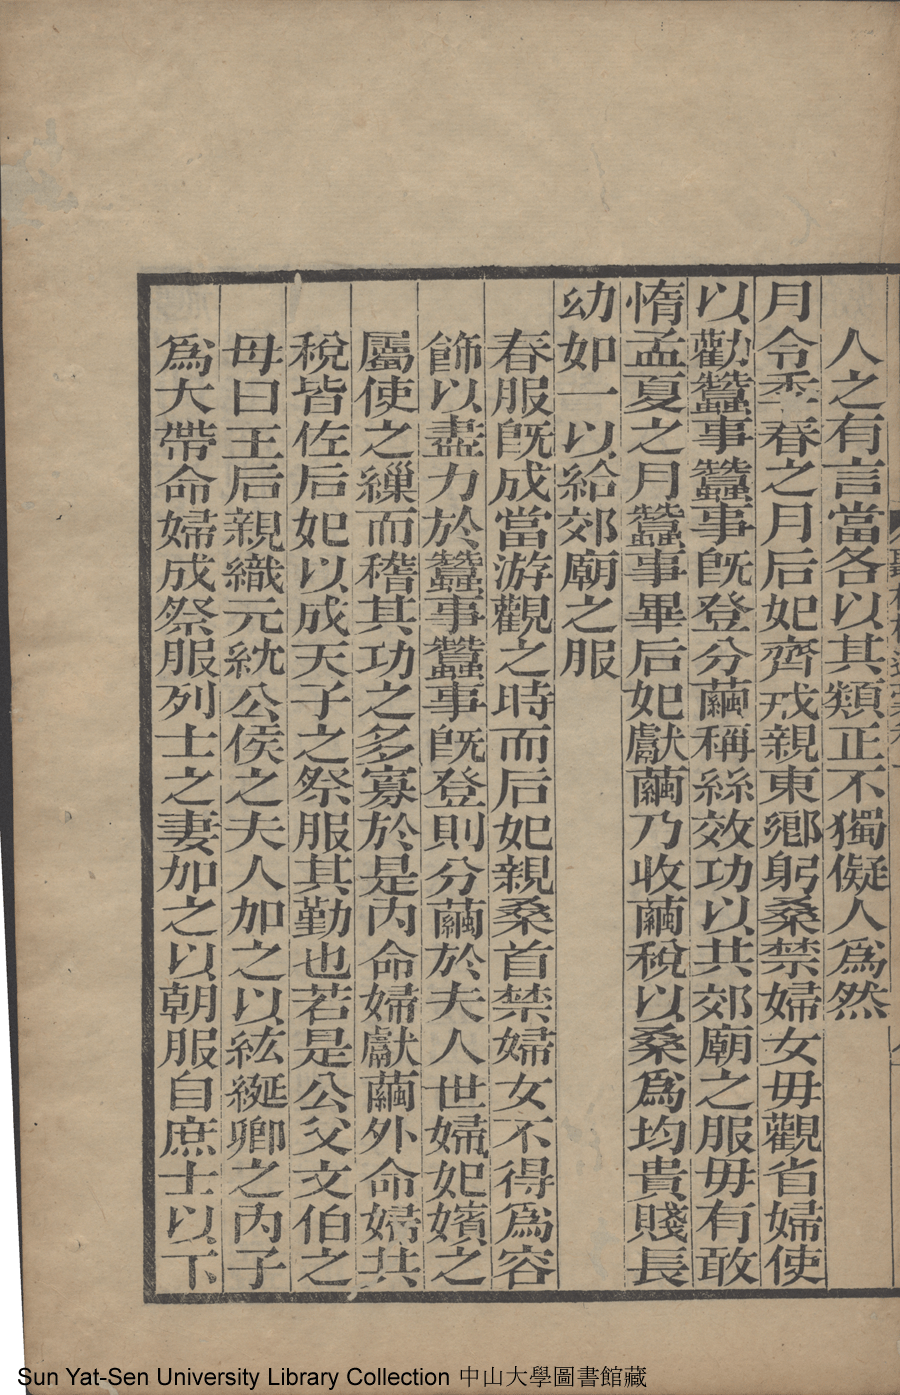 人之有言當各以其類正不獨儗人爲然
月令季春之月后妃齊戒親東鄉躬桑禁婦女毋觀省婦使
以勸蠶事蠶事既登分繭稱絲效功以共郊廟之服毋有敢
惰孟夏之月蠶事畢后妃獻繭乃收繭稅以桑爲均貴賤長
幼如一以給郊廟之服
春服既成當游觀之時而后妃親桑首禁婦女不得爲容
飾以盡力於蠶事蠶事既登則分繭於夫人世婦妃嬪之
屬使之繅而稽其功之多寡於是內命婦獻繭外命婦共
稅皆佐后妃以成天子之祭服其勤也若是公父文伯之
母曰王后親織元紞公侯之夫人加之以紘綖卿之內子
爲大帶命婦成祭服列士之妻加之以朝服自庶士以下
Sun Yat-Sen University Library Collection 中山大學圖書館藏